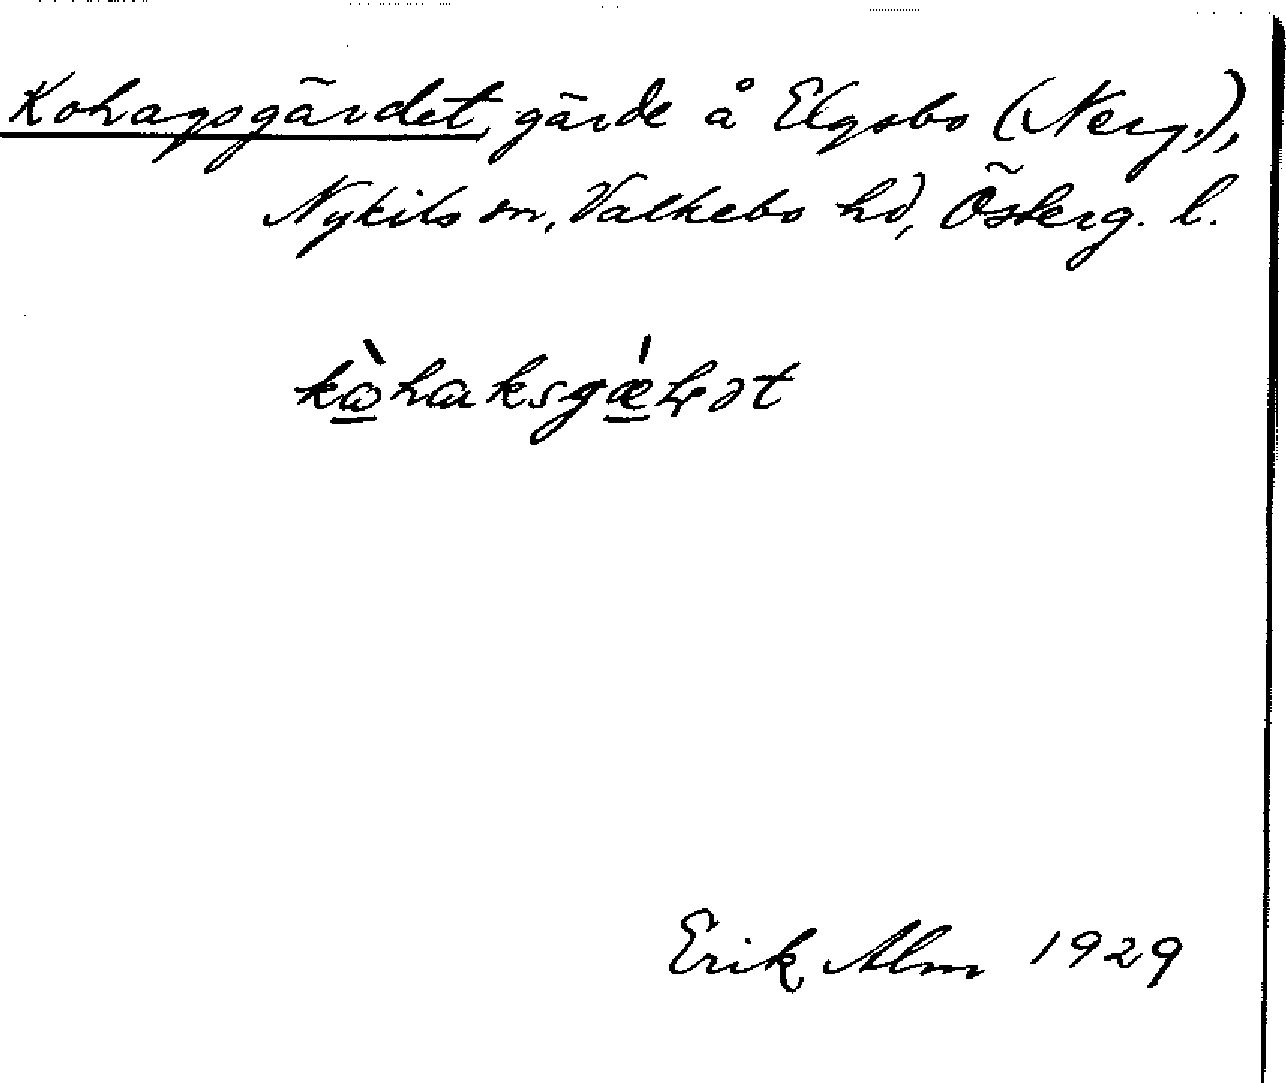 Kohagsgärdet, gärde å Elgsbo (Nerg.),
Nykils sn, Valkebo hd, Österg. l.
Erik Alm 1929